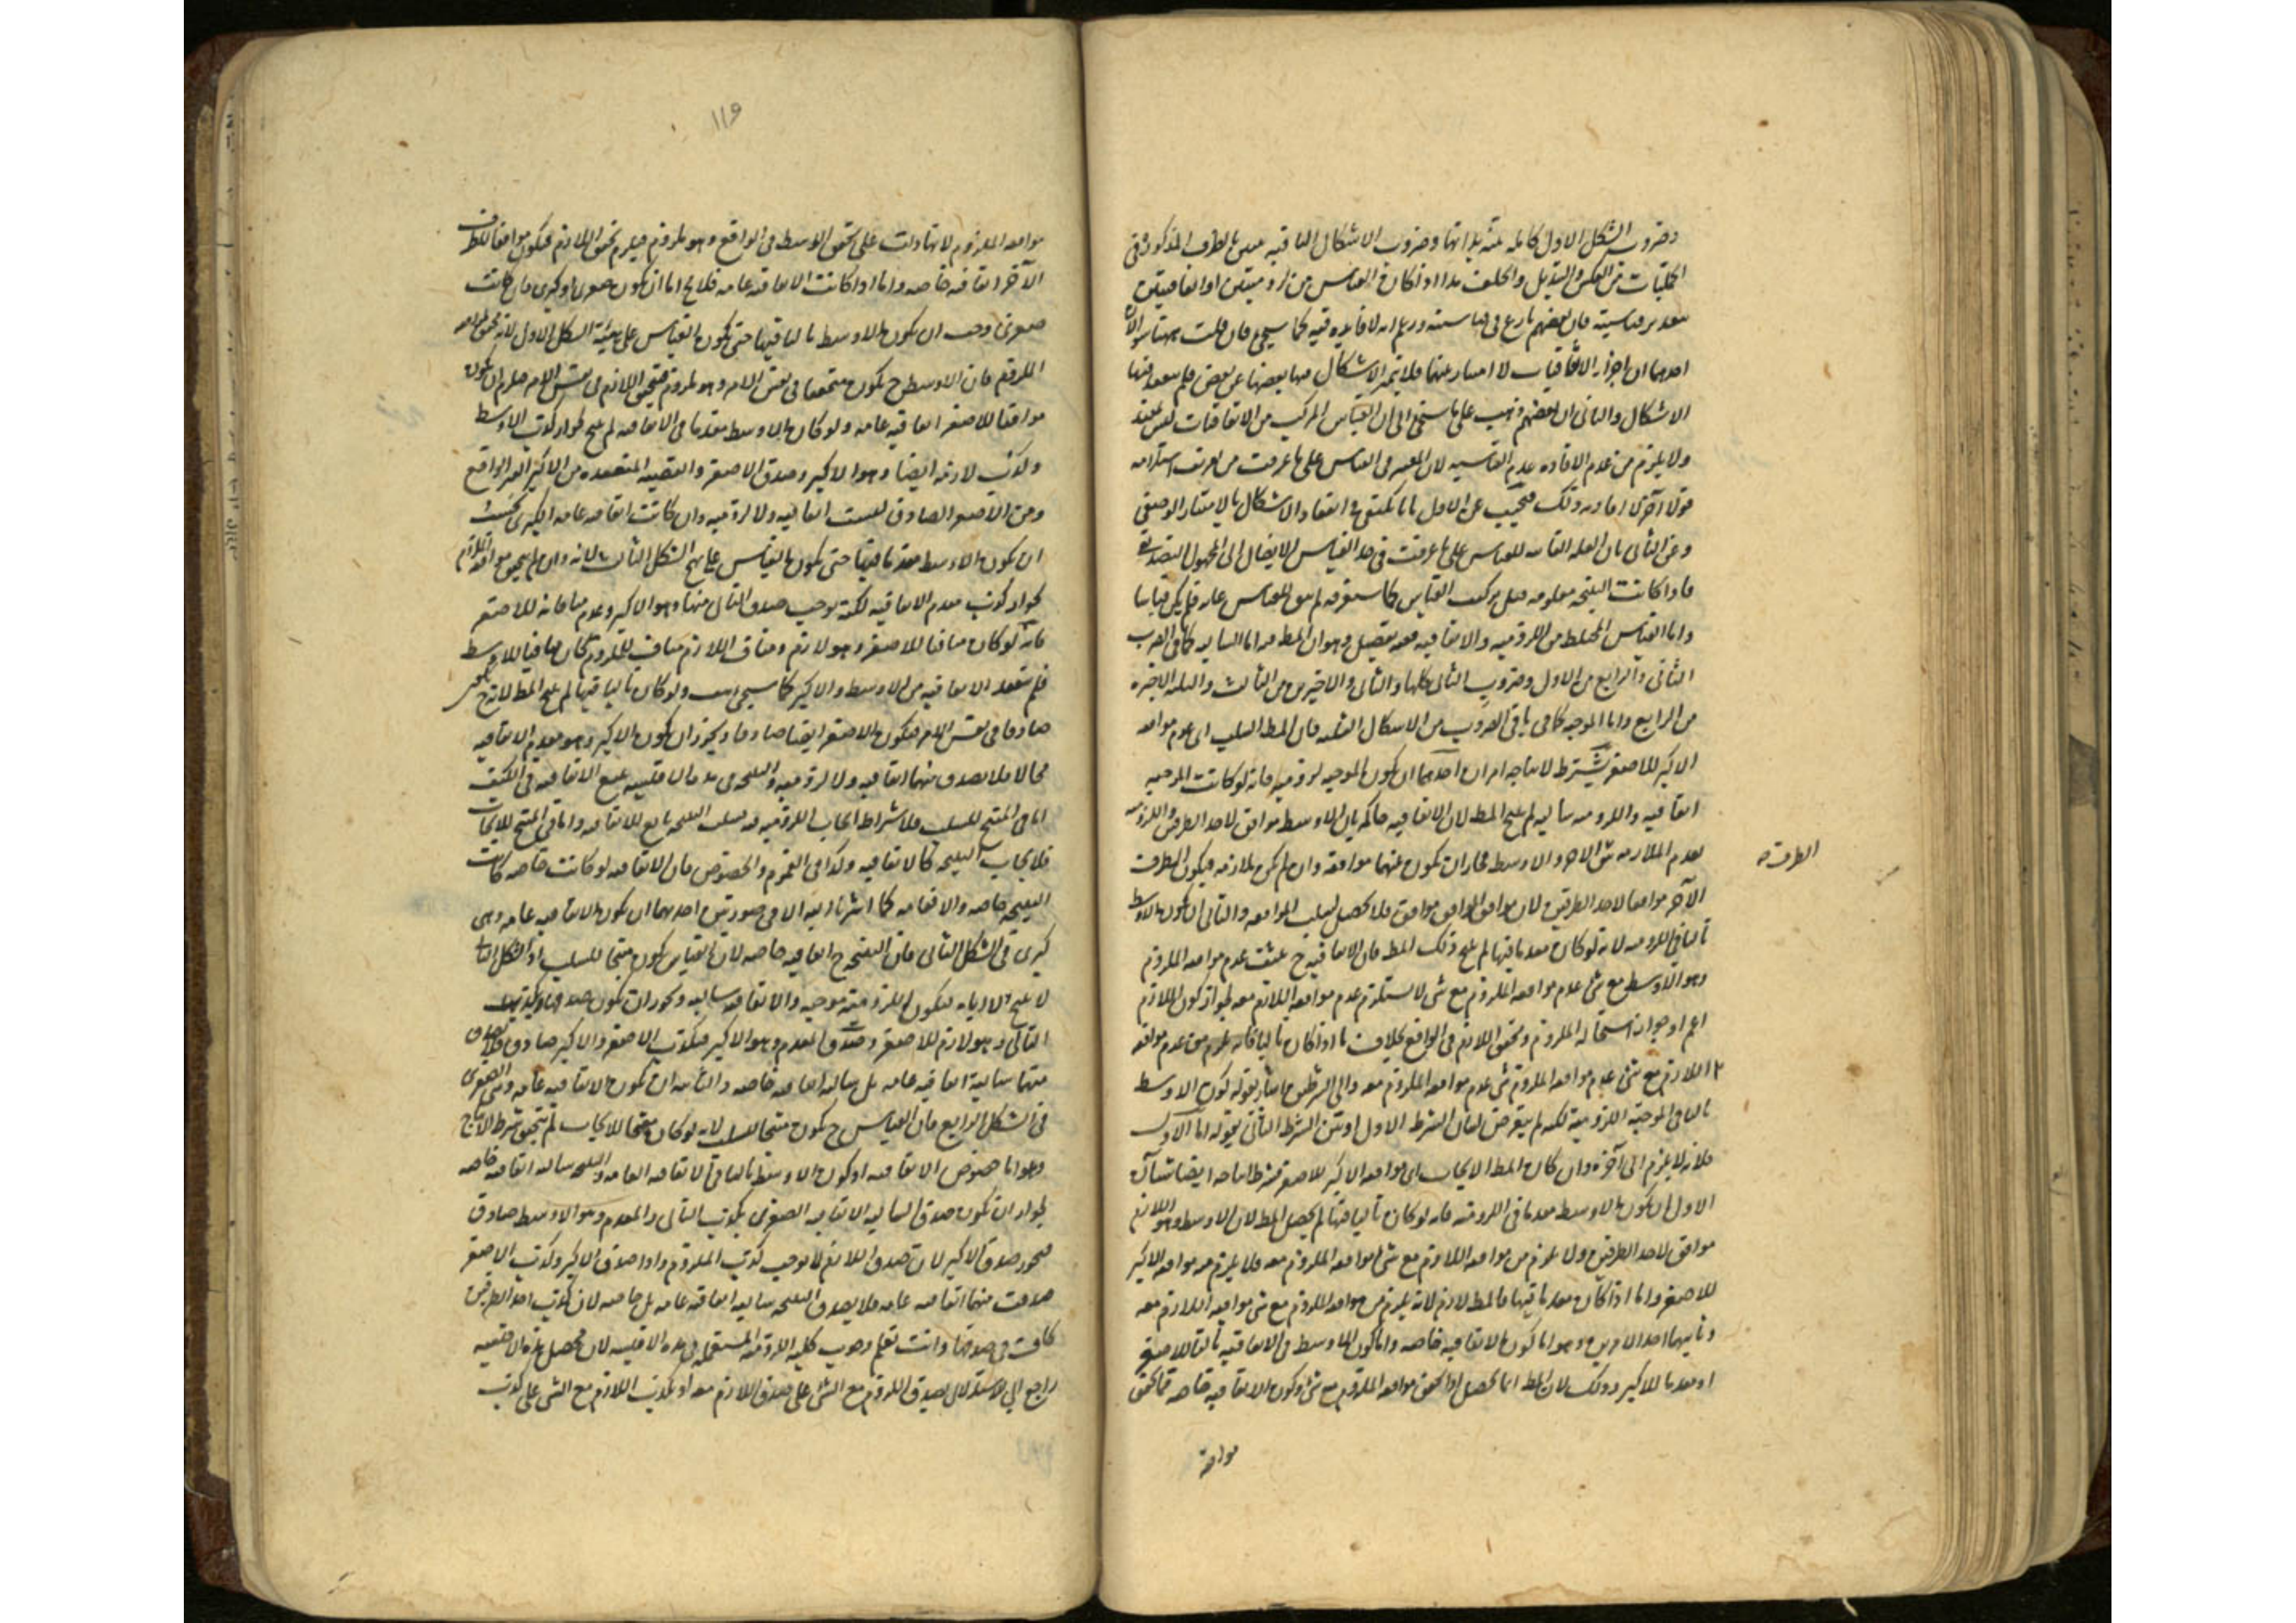 وضروب الشكل الاول كاملة بينة بذاتها وضروب الاشكال الباقية تبين بالطرق المذكورة في
الحمليات من العكس والتبديل والخلف هذا اذا كان القياس من لزوميتين او اتفاقيتين
فان بعضهم نازع في قياسيته وزعم انه لا فايدة فيه كما سيجي فان قلت
احدهما ان اجزاء الاتفاقيات لا امتياز بينها فلا تتميز الاشكال فيها بعضها عن بعض فلم ينعقد فيها
الاشكال والثاني ان بعضهم ذهب على ما ستجي الى ان القياس المركب من الاتفاقيات ليس بمفيد
ولا يلزم من عدم الافادة عدم القياسية لان المعتبر في القياس على ما عرفت من تعريفه استلزامه
قولا آخر لا افادته وذلك فنجيب عن الاول بانا نكتفي في انعقاد الاشكال بالامتياز الوضعي
وعن الثاني بان العلة الغائية للقياس على ما عرفت في حد القياس الايصال الى المجهول التصديقي
فاذا كانت النتيجة معلومة قبل تركيب القياس كما ستعرفه لم يبق للقياس غاية فلم يكن قياسا
واما القياس المختلط من اللزومية والاتفاقية ففيه تفصيل وهو ان المط منه اما السالبة كما في الضرب
الثاني والرابع من الاول وضروب الثاني كلها والثاني والاخيرين من الثالث والثلثة الاخيرة
من الرابع واما الموجبة كما في باقي الضروب من الاشكال الثلثة فان كان المط السلب اي عدم موافقة
الاكبر للاصغر يشترط لانتاجه امران احدهما ان يكون الموجبة لزومية فانه لو كانت الموجبة
اتفاقية واللزومية سالبة لم ينتج المط لان الاتفاقية حاكمة بان الاوسط موافق لاحد الطرفين واللزومية
بعدم الملازمة بين الاخر والاوسط فجاز ان يكون بينهما موافقة وان لم يكن ملازمة فيكون الطرف
الآخر موافقا لاحد الطرفين لان موافق الموافق موافق فلا يحصل سلب الموافقة والثاني ان يكون الاوسط
تاليا في اللزومية لانه لو كان مقدما فيها لم ينتج ذلك المط فان الاتفاقية ح عدم موافقة الملزوم
وهو الاوسط مع شي وعدم موافقة الملزوم مع شي لا يستلزم عدم موافقة اللازم معه لجواز كون اللازم
اعم او جواز استحالة الملزوم وتحقق اللازم في الواقع بخلاف ما اذا كان تاليا فانه يلزم من عدم موافقة
اللازم مع شي عدم موافقة الملزوم معه والى الشرطين اشار بقوله كون الاوسط
تاليا في الموجبة اللزومية لكنه لم يتعرض لبيان الشرط الاول وبين الشرط الثاني بقوله اما الاول
فلانه لا يلزم الى آخره وان كان المط الايجاب اي موافقة الاكبر للاصغر فشرط انتاجه ايضا شيآن
الاول ان يكون الاوسط مقدما في اللزومية فانه لو كان تاليا فيها لم يحصل المط لان الاوسط وهو اللازم
موافق لاحد الطرفين ولا يلزم من موافقة اللازم مع شي موافقة الملزوم معه فلا يلزم منه موافقة الاكبر
للاصغر واما اذا كان مقدما فيها فالمط لازم لانه يلزم من موافقة الملزوم مع شي موافقة اللازم معه
وثانيهما احد الامرين وهو اما كون الاتفاقية خاصة واما كون الاوسط في الاتفاقية تاليا للاصغر
او مقدما للاكبر وذلك لان المط انما يحصل اذا تحقق موافقة الملزوم مع شي وكون الاتفاقية خاصة
الطرف
موافقة
١١٩
موافقة الملزوم لانها دلت على تحقق الاوسط في الواقع وهو ملزوم فيلزم تحقق اللازم فيكون موافقا للطرف
الآخر اتفاقية خاصة واما اذا كانت الاتفاقية عامة فلا يخ اما ان يكون صغرى او كبرى فان كانت
صغرى وجب ان يكون الاوسط تاليا فيها حتى يكون القياس على هيئة الشكل الاول لانه
الملزوم فان الاوسط ح يكون متحققا في نفس الامر وهو ملزوم فيتحقق اللازم في نفس الامر فيلزم ان يكون
موافقا للاصغر اتفاقية عامة ولو كان الاوسط مقدما في الاتفاقية لم ينتج لجواز كذب الاوسط
وكذب لازمه ايضا وهو الاكبر وصدق الاصغر والقضية المنعقدة من الاكبر الغير الواقع
ومن الاصغر الصادق ليست اتفاقية ولا لزومية وان كانت اتفاقية عامة الكبرى فيجب
ان يكون الاوسط مقدما فيها حتى يكون القياس على نهج الشكل الثالث لانه وان لم يتحقق موافقة الملزوم
لجواز كذب مقدم الاتفاقية لكنه يوجب صدق التالي منها وهو الاكبر وعدم منافاته للاصغر
فانه لو كان منافيا للاصغر وهو لازم ومنافي اللازم مناف للملزوم لكان منافيا للاوسط
فلم ينعقد الاتفاقية من الاوسط والاكبر كما سيجي ولو كان تاليا فيها لم ينتج المط لانه ح يكون
صادقا في نفس الامر فيكون الاصغر ايضا صادقا ويجوز ان يكون الاكبر وهو مقدم الاتفاقية
محالا فلا يصدق منهما اتفاقية ولا لزومية والنتيجة في هذه الاقيسة تتبع الاتفاقية في الكيف
اما في المنتج للسلب فلاشتراط ايجاب اللزومية فسلب النتيجة تابع للاتفاقية واما في المنتج للايجاب
فلايجاب النتيجة كالاتفاقية وكذا في العموم والخصوص فان الاتفاقية لو كانت خاصة كانت
النتيجة خاصة والا فعامة كما اشرنا اليه الا في صورتين احدهما ان يكون الاتفاقية عامة وهي
كبرى في الشكل الثاني فان النتيجة ح اتفاقية خاصة لان القياس يكون منتجا للسلب اذ الشكل الثاني
لا ينتج الا اياه فيكون اللزومية موجبة والاتفاقية سالبة ويجوز ان يكون صدقها بكذب
التالي وهو لازم للاصغر وصدق المقدم وهو الاكبر فيكذب الاصغر والاكبر صادق فلا يصدق
منهما سالبة اتفاقية عامة بل سالبة اتفاقية خاصة والثانية ان يكون الاتفاقية عامة وهي الصغرى
في الشكل الرابع فان القياس ح يكون منتجا للسلب لانه لو كان منتجا للايجاب لم يتحقق شرط الانتاج
وهو اما خصوص الاتفاقية او كون الاوسط تاليا في الاتفاقية العامة والنتيجة سالبة اتفاقية خاصة
لجواز ان يكون صدق السالبة الاتفاقية الصغرى بكذب التالي والمقدم وهو الاوسط صادق
فيجوز صدق الاكبر لان صدق اللازم لا يوجب كذب الملزوم واذا صدق الاكبر وكذب الاصغر
صدقت منهما اتفاقية عامة فلا يصدق النتيجة سالبة اتفاقية عامة بل خاصة لان كذب احد الطرفين
كاف في صدقها وانت تعلم وجوب كلية اللزومية المستعملة في هذه الاقيسة لان محصل هذه الاقيسة
راجع الى الاستدلال بصدق الملزوم مع الشي على صدق اللازم معه او بكذب اللازم مع الشي على كذب